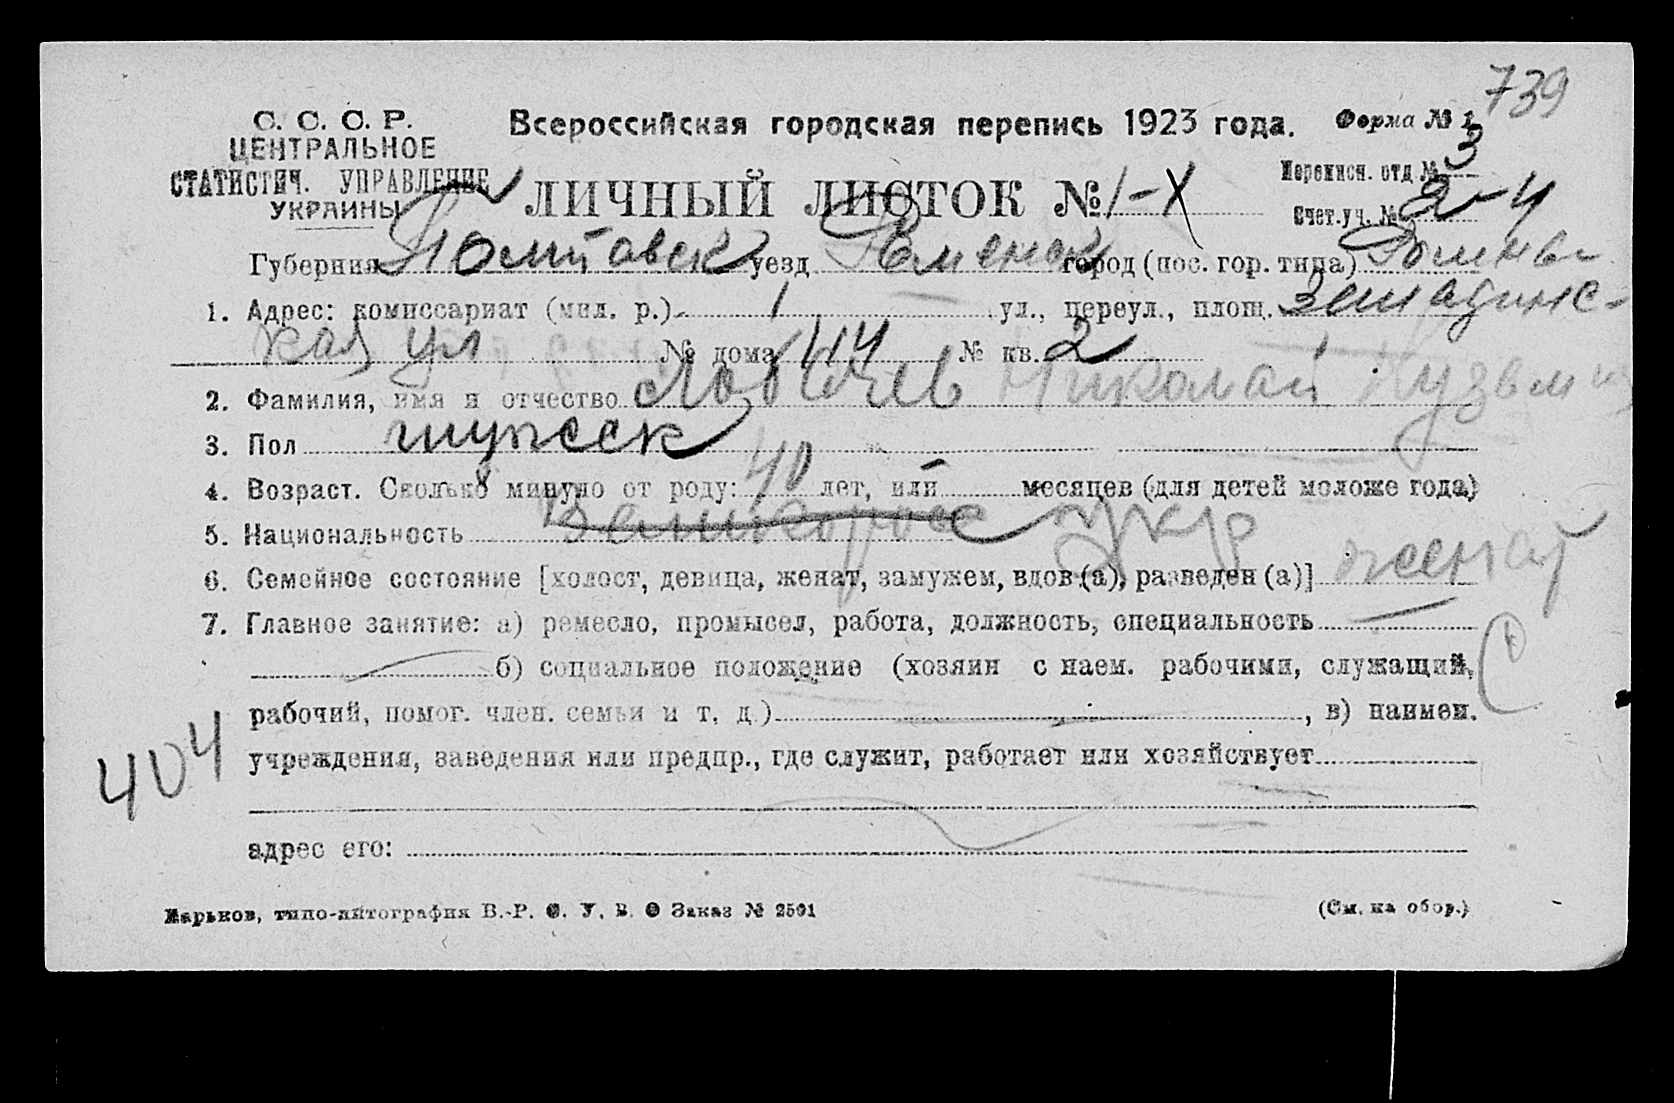 739
С. С. С. Р. Всероссийская городская перепись 1923 года. Форма № 1
ЦЕНТРАЛЬНОЕ
СТАТИСТИЧ. УПРАВЛЕНИЕ ЛИЧНЫЙ ЛИСТОК № 1-X Переписн. отд № 3
УКРАИНЫ Счет. уч. № 2-4
Губерния Полтавск уезд Роменск город (пос. гор. типа) Ромны
1. Адрес: комиссариат (мил. р.) 1 ул., переул., площ.
кая ул № дома 44 № кв. 2
2. Фамилия, имя и отчество Николай Кузьмич
3. Пол мужеск
4. Возраст. Сколько минуло от роду: 40 лет, или – месяцев (для детей моложе года)
5. Национальность Великоросс Укр
6. Семейное состояние [холост, девица, женат, замужем, вдов (а), разведен (а)] женат
7. Главное занятие: а) ремесло, промысел, работа, должность, специальность —
б) социальное положение (хозяин с наем. рабочими, служащий,
рабочий, помог. член. семьи и т. д.) , в) наимен.
404 учреждения, заведения или предпр., где служит, работает или хозяйствует
адрес его:
Харьков, типо-литография В.-Р. Ф. У. В. О Заказ № 2501 (См. на обор.)